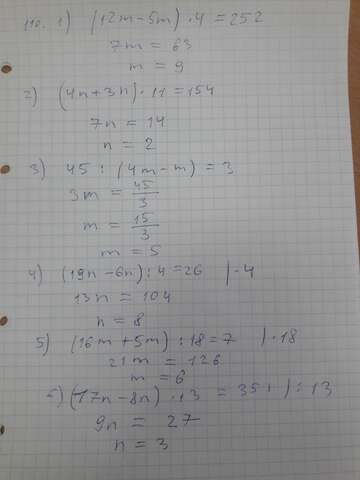 110. 1) (12m-5m) · 4 = 252
7m = 63
m = 9
2) (4n+3n) · 11 = 154
7n = 14
n = 2
3) 45 : (4m-m) = 3
3m = 45/3
m = 15/3
m = 5
4) (19n-6n) : 4 = 26 | · 4
13n = 104
n = 8
5) (16m+5m) : 18 = 7 | · 18
21m = 126
m = 6
6) (17n-8n) · 13 = 351 | : 13
9n = 27
n = 3